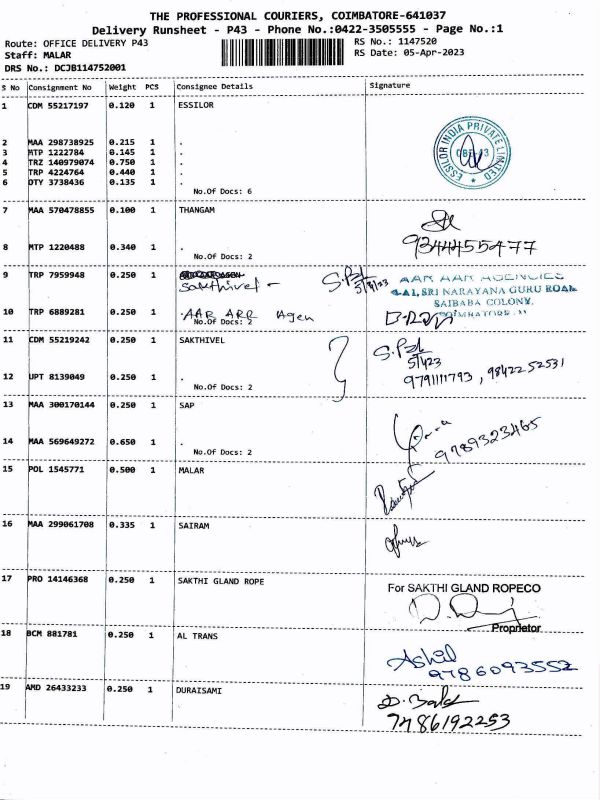 THE PROFESSIONAL COURIERS, COIMBATORE-641037
Delivery Runsheet - P43 - Phone No.:0422-3505555 - Page No.:1
Route: OFFICE DELIVERY P43
RS No.: 1147520
Staff: MALAR
RS Date: 05-Apr-2023
DRS No.: DCJB114752001
S No Consignment No Weight PCS Consignee Details Signature
1 CDM 55217197 0.120 1 ESSILOR
ESSILOR INDIA PRIVATE LIMITED
2 MAA 298738925 0.215 1 .
3 MTP 1222784 0.145 1 .
4 TRZ 140979074 0.750 1 .
5 TRP 4224764 0.440 1 .
6 DTY 3738436 0.135 1 .
No.Of Docs: 6
7 MAA 570478855 0.100 1 THANGAM
9344455477
8 MTP 1220488 0.340 1 .
No.Of Docs: 2
9 TRP 7959948 0.250 1
Sakthivel -
AAR AAR AGENCIES
4-A1, SRI NARAYANA GURU ROAD
SAIBABA COLONY,
10 TRP 6889281 0.250 1 . AAR ARR Agen
COIMBATORE - 11
No.Of Docs: 2
11 CDM 55219242 0.250 1 SAKTHIVEL
5/4/23
12 UPT 8139049 0.250 1 .
9791111793, 9842252531
No.Of Docs: 2
13 MAA 300170144 0.250 1 SAP
9789323465
14 MAA 569649272 0.650 1 .
No.Of Docs: 2
15 POL 1545771 0.500 1 MALAR
16 MAA 299061708 0.335 1 SAIRAM
17 PRO 14146368 0.250 1 SAKTHI GLAND ROPE
For SAKTHI GLAND ROPECO
Proprietor
18 BCM 881781 0.250 1 AL TRANS
Ashil
9786093552
19 AMD 26433233 0.250 1 DURAISAMI
D. Bala
7486192253